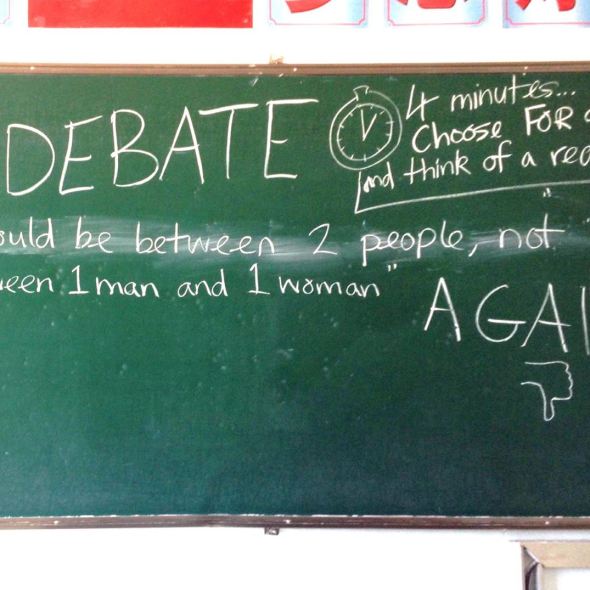 DEBATE
4 minutes...
Choose FOR
and think of a
be between 2 people, not
1 man and 1 woman"